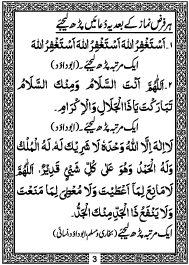 ہر فرض نماز کے بعد یہ دعائیں پڑھ لیجئے
۱. اَسْتَغْفِرُ اللهَ اَسْتَغْفِرُ اللهَ اَسْتَغْفِرُ اللهَ
ایک مرتبہ پڑھ لیجئے۔ (ابوداؤد)
۲. اَللّٰهُمَّ اَنْتَ السَّلَامُ وَمِنْكَ السَّلَامُ
تَبَارَكْتَ يَا ذَا الْجَلَالِ وَالْاِكْرَامِ.
ایک مرتبہ پڑھ لیجئے۔ (ابوداؤد)
لَا اِلٰهَ اِلَّا اللهُ وَحْدَهٗ لَا شَرِيْكَ لَهٗ لَهُ الْمُلْكُ
وَلَهُ الْحَمْدُ وَهُوَ عَلٰى كُلِّ شَيْءٍ قَدِيْرٌ، اَللّٰهُمَّ
لَا مَانِعَ لِمَا اَعْطَيْتَ وَلَا مُعْطِيَ لِمَا مَنَعْتَ
وَلَا يَنْفَعُ ذَا الْجَدِّ مِنْكَ الْجَدُّ.
ایک مرتبہ پڑھ لیجئے (بخاری، مسلم، ابوداؤد، نسائی)
3